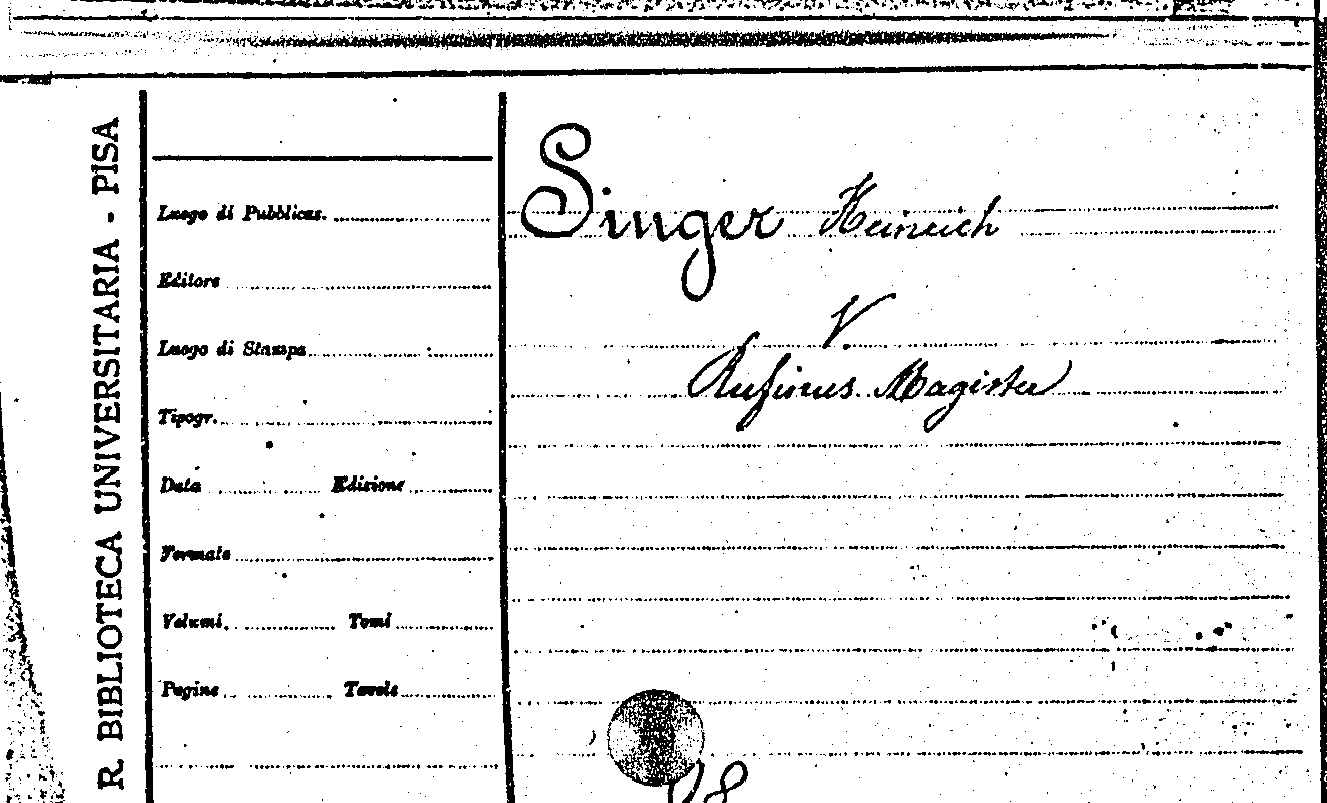 R. BIBLIOTECA UNIVERSITARIA - PISA
Luogo di Pubblicaz.
Editore
Luogo di Stampa
Tipogr.
Data Edizione
Formato
Volumi Tomi
Pagine Tavole
Singer Heinrich
V.
Rufinus Magister
98